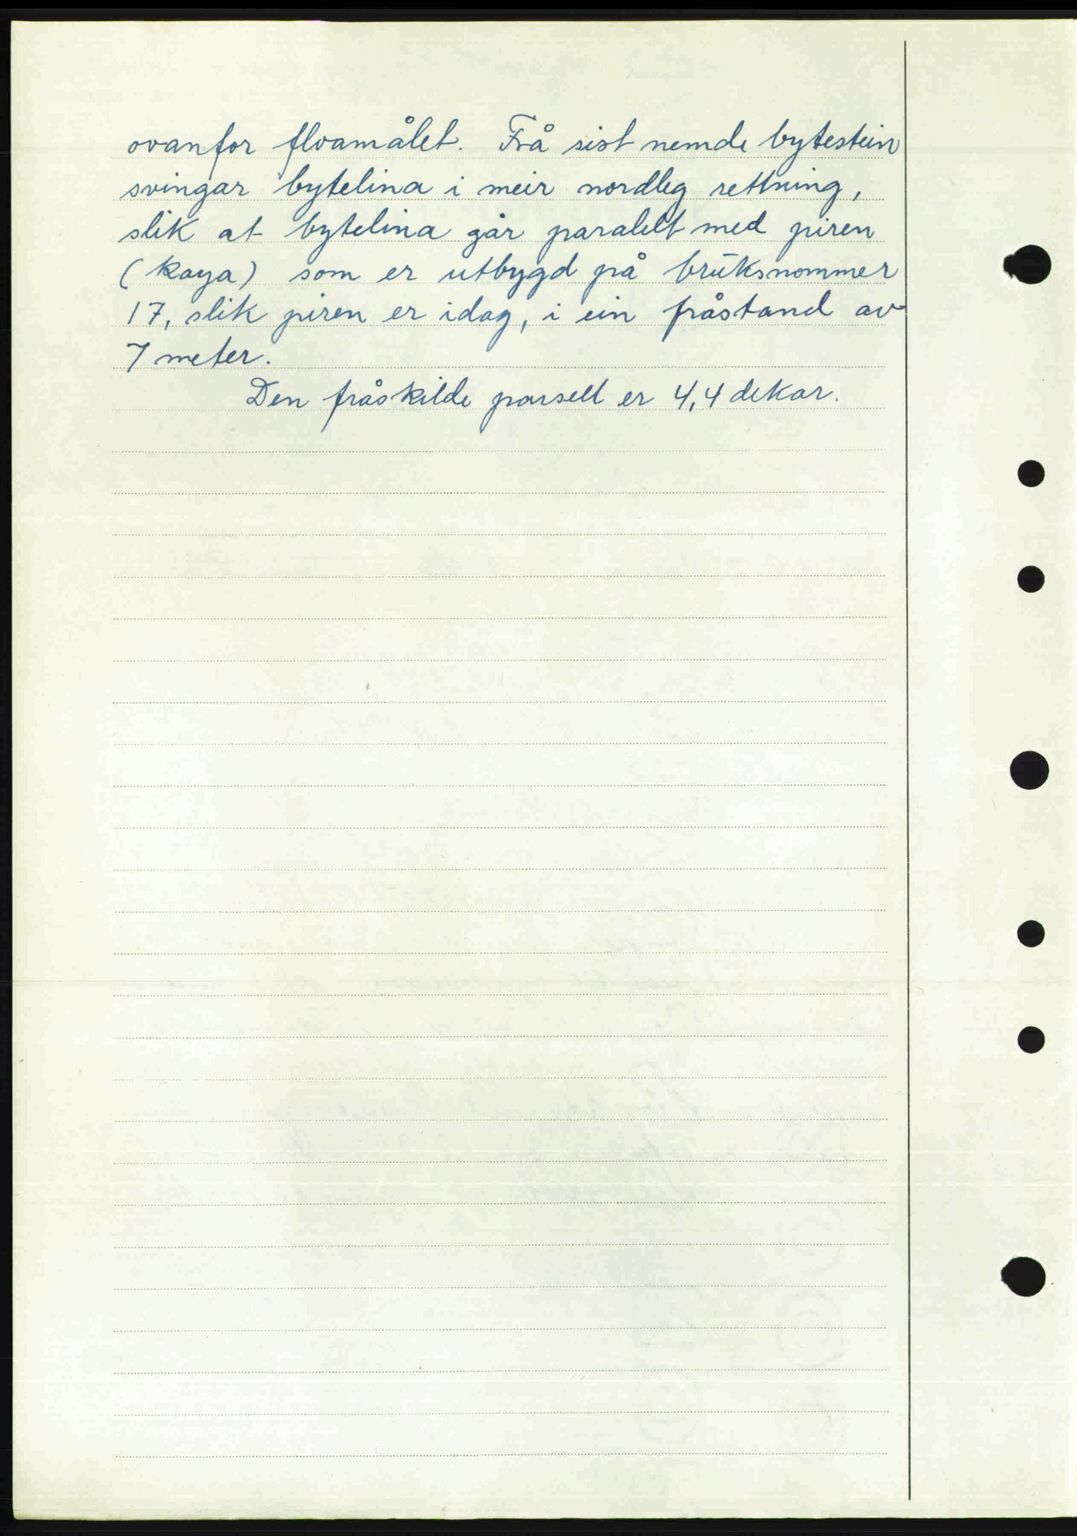 ovanfor floamålet. Frå sist nemde bytestein
svingar bytelina i meir nordleg rettning,
slik at bytelina går paralelt med piren
(kaya) som er utbygd på brüksnommer
17, slik piren er idag, i ein fråstand av
7 meter.
Den fråskilde parsell er 4,4 dekar.